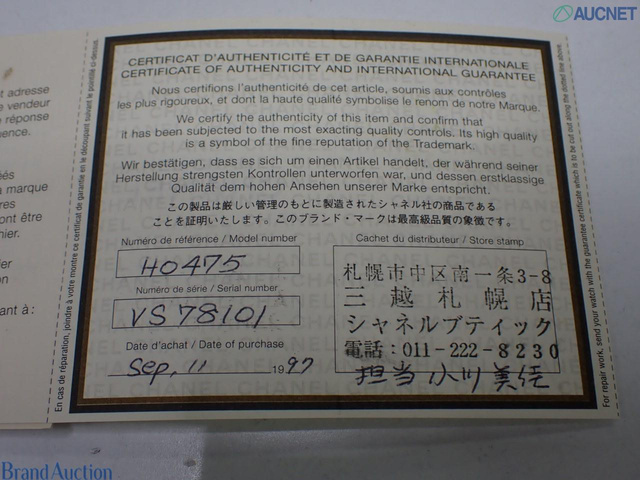 AUCNET
CERTIFICAT D'AUTHENTICITÉ ET DE GARANTIE INTERNATIONALE
CERTIFICATE OF AUTHENTICITY AND INTERNATIONAL GUARANTEE
Nous certifions l'authenticité de cet article, soumis aux contrôles
les plus rigoureux, et dont la haute qualité symbolise le renom de notre Marque.
We certify the authenticity of this item and confirm that
it has been subjected to the most exacting quality controls. Its high quality
is a symbol of the fine reputation of the Trademark.
Wir bestätigen, dass es sich um einen Artikel handelt, der während seiner
Herstellung strengsten Kontrollen unterworfen war, und dessen erstklassige
Qualität dem hohen Ansehen unserer Marke entspricht.
この製品は厳しい管理のもとに製造されたシャネル社の商品である
ことを証明いたします。このブランド・マークは最高級品質の象徴です。
Numéro de référence / Model number
H0475
Numéro de série / Serial number
VS78101
Date d'achat / Date of purchase
Sep. 11 1997
Cachet du distributeur / Store stamp
札幌市中区南一条3-8
三越札幌店
シャネルブティック
電話:011-222-8230
担当 小川
En cas de réparation, joindre à votre montre ce certificat de garantie en le découpant suivant le pointillé ci-dessus.
For repair work, send your watch with the guarantee certificate which is to be cut out along the dotted line above.
t adresse
vendeur
réponse
ence.
és
a marque
res
ont être
ier.
er
ation
ant à :
Brand Auction